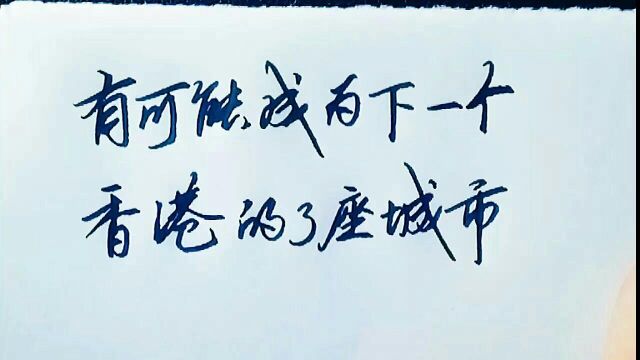 有可能成为下一个
香港的3座城市